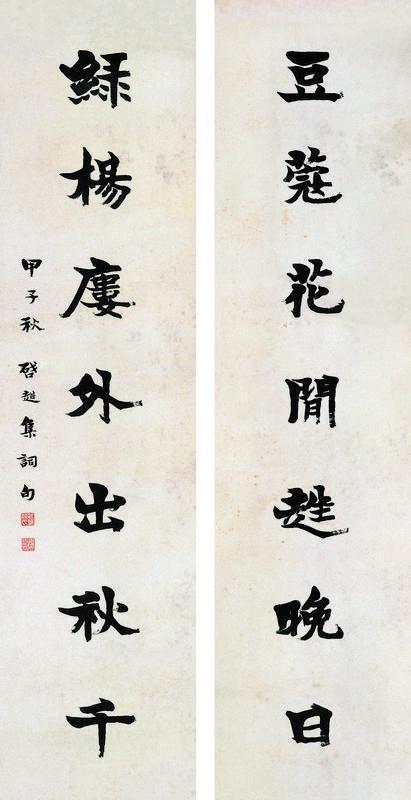 豆蔻花閒趖晚日
綠楊廔外出秋千
甲子秋 啓超集詞句